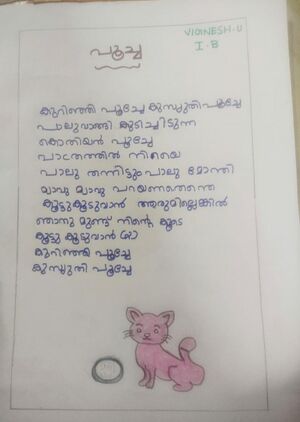 VIGINESH-U
I-B
പൂച്ച
കുറിഞ്ഞി പൂച്ചേ കുസൃതിപൂച്ചേ
പാലുവാങ്ങി കുടിച്ചിടുന്ന
കൊതിയൻ പൂച്ചേ
പാത്രത്തിൽ നിറയെ
പാലു തന്നിട്ടും പാലു മോന്തി
മ്യാവു മ്യാവു പറയണതെന്തെ
കൂട്ടുകൂടുവാൻ ആരുമില്ലെങ്കിൽ
ഞാനു മുണ്ട് നിന്റെ കൂടെ
കൂട്ടു കൂടുവാൻ
കുറിഞ്ഞി പൂച്ചേ
കുസൃതി പൂച്ചേ